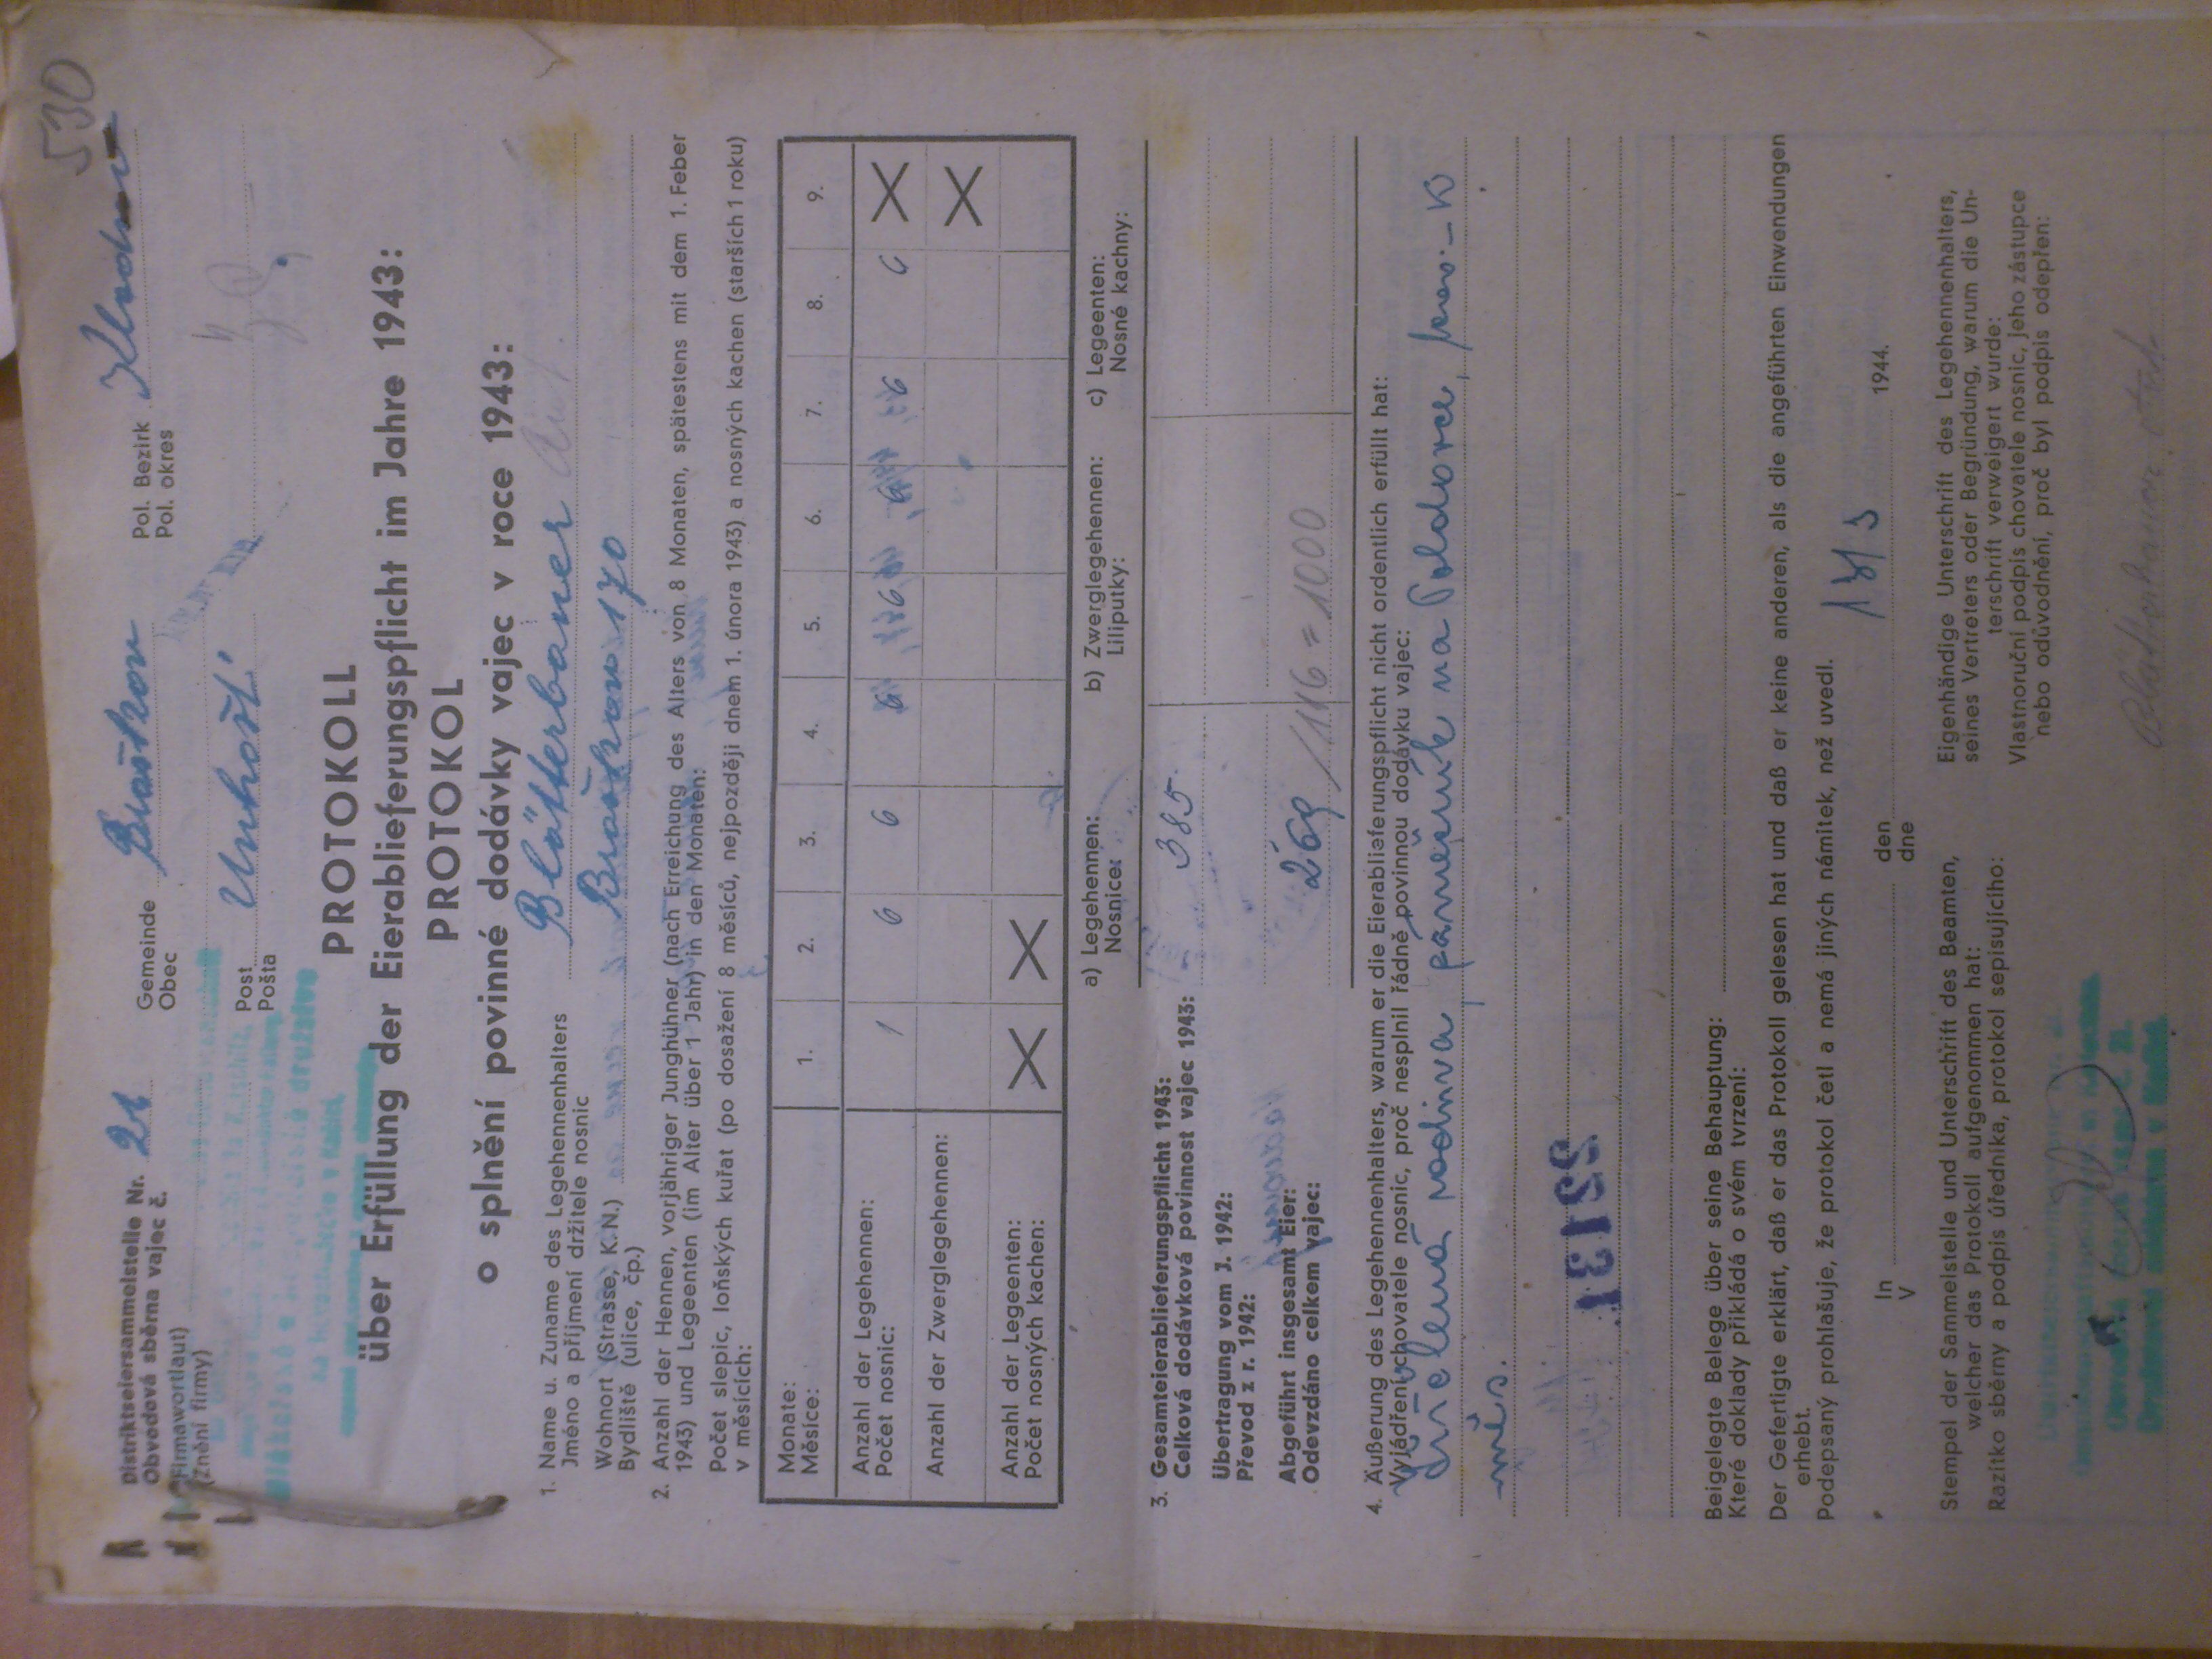 530
Distriktseiersammelstelle Nr. 21 Gemeinde Braškov Pol. Bezirk Kladno
Obvodová sběrna vajec č. Obec Pol. okres
(Firmawortlaut)
(Znění firmy)
Post Unhošť
Pošta
družstvo
PROTOKOLL
über Erfüllung der Eierablieferungspflicht im Jahre 1943:
PROTOKOL
o splnění povinné dodávky vajec v roce 1943:
1. Name u. Zuname des Legehennenhalters Blätterbauer Ant.
Jméno a příjmení držitele nosnic
Wohnort (Strasse, K. N.) Braškov 170
Bydliště (ulice, čp.)
2. Anzahl der Hennen, vorjähriger Junghühner (nach Erreichung des Alters von 8 Monaten, spätestens mit dem 1. Feber
1943) und Legeenten (im Alter über 1 Jahr) in den Monaten:
Počet slepic, loňských kuřat (po dosažení 8 měsíců, nejpozději dnem 1. února 1943) a nosných kachen (starších 1 roku)
v měsících:
Monate:
Měsíce: 1. 2. 3. 4. 5. 6. 7. 8. 9.
Anzahl der Legehennen:
Počet nosnic: 1 6 6 6 6 6 6 6 X
Anzahl der Zwerglegehennen: X
Anzahl der Legeenten:
Počet nosných kachen: X X
a) Legehennen: b) Zwerglegehennen: c) Legeenten:
Nosnice: Liliputky: Nosné kachny:
3. Gesamteierablieferungspflicht 1943:
Celková dodávková povinnost vajec 1943: 385
Übertragung vom J. 1942:
Převod z r. 1942:
Abgeführt insgesamt Eier:
Odevzdáno celkem vajec: 269 /116 = 1000
4. Äußerung des Legehennenhalters, warum er die Eierablieferungspflicht nicht ordentlich erfüllt hat:
Vyjádření chovatele nosnic, proč nesplnil řádně povinnou dodávku vajec:
rodina, zámečník na Poldovce, K
měs.
22131
Beigelegte Belege über seine Behauptung:
Které doklady přikládá o svém tvrzení:
Der Gefertigte erklärt, daß er das Protokoll gelesen hat und daß er keine anderen, als die angeführten Einwendungen
erhebt.
Podepsaný prohlašuje, že protokol četl a nemá jiných námitek, než uvedl.
In den 13/3 1944.
V dne
Stempel der Sammelstelle und Unterschrift des Beamten,
welcher das Protokoll aufgenommen hat:
Razítko sběrny a podpis úředníka, protokol sepisujícího:
Eigenhändige Unterschrift des Legehennenhalters,
seines Vertreters oder Begründung, warum die Un-
terschrift verweigert wurde:
Vlastnoruční podpis chovatele nosnic, jeho zástupce
nebo odůvodnění, proč byl podpis odepřen:
Blätterbauer Ant.